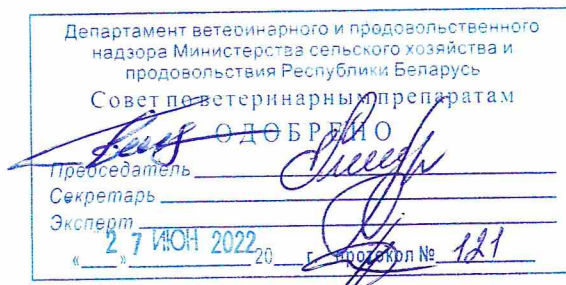 Департамент ветеринарного и продовольственного
надзора Министерства сельского хозяйства и
продовольствия Республики Беларусь
Совет по ветеринарным препаратам
ОДОБРЕНО
Председатель
Секретарь
Эксперт
« 2 » 7 ИЮН 2022 20 г. протокол № 121